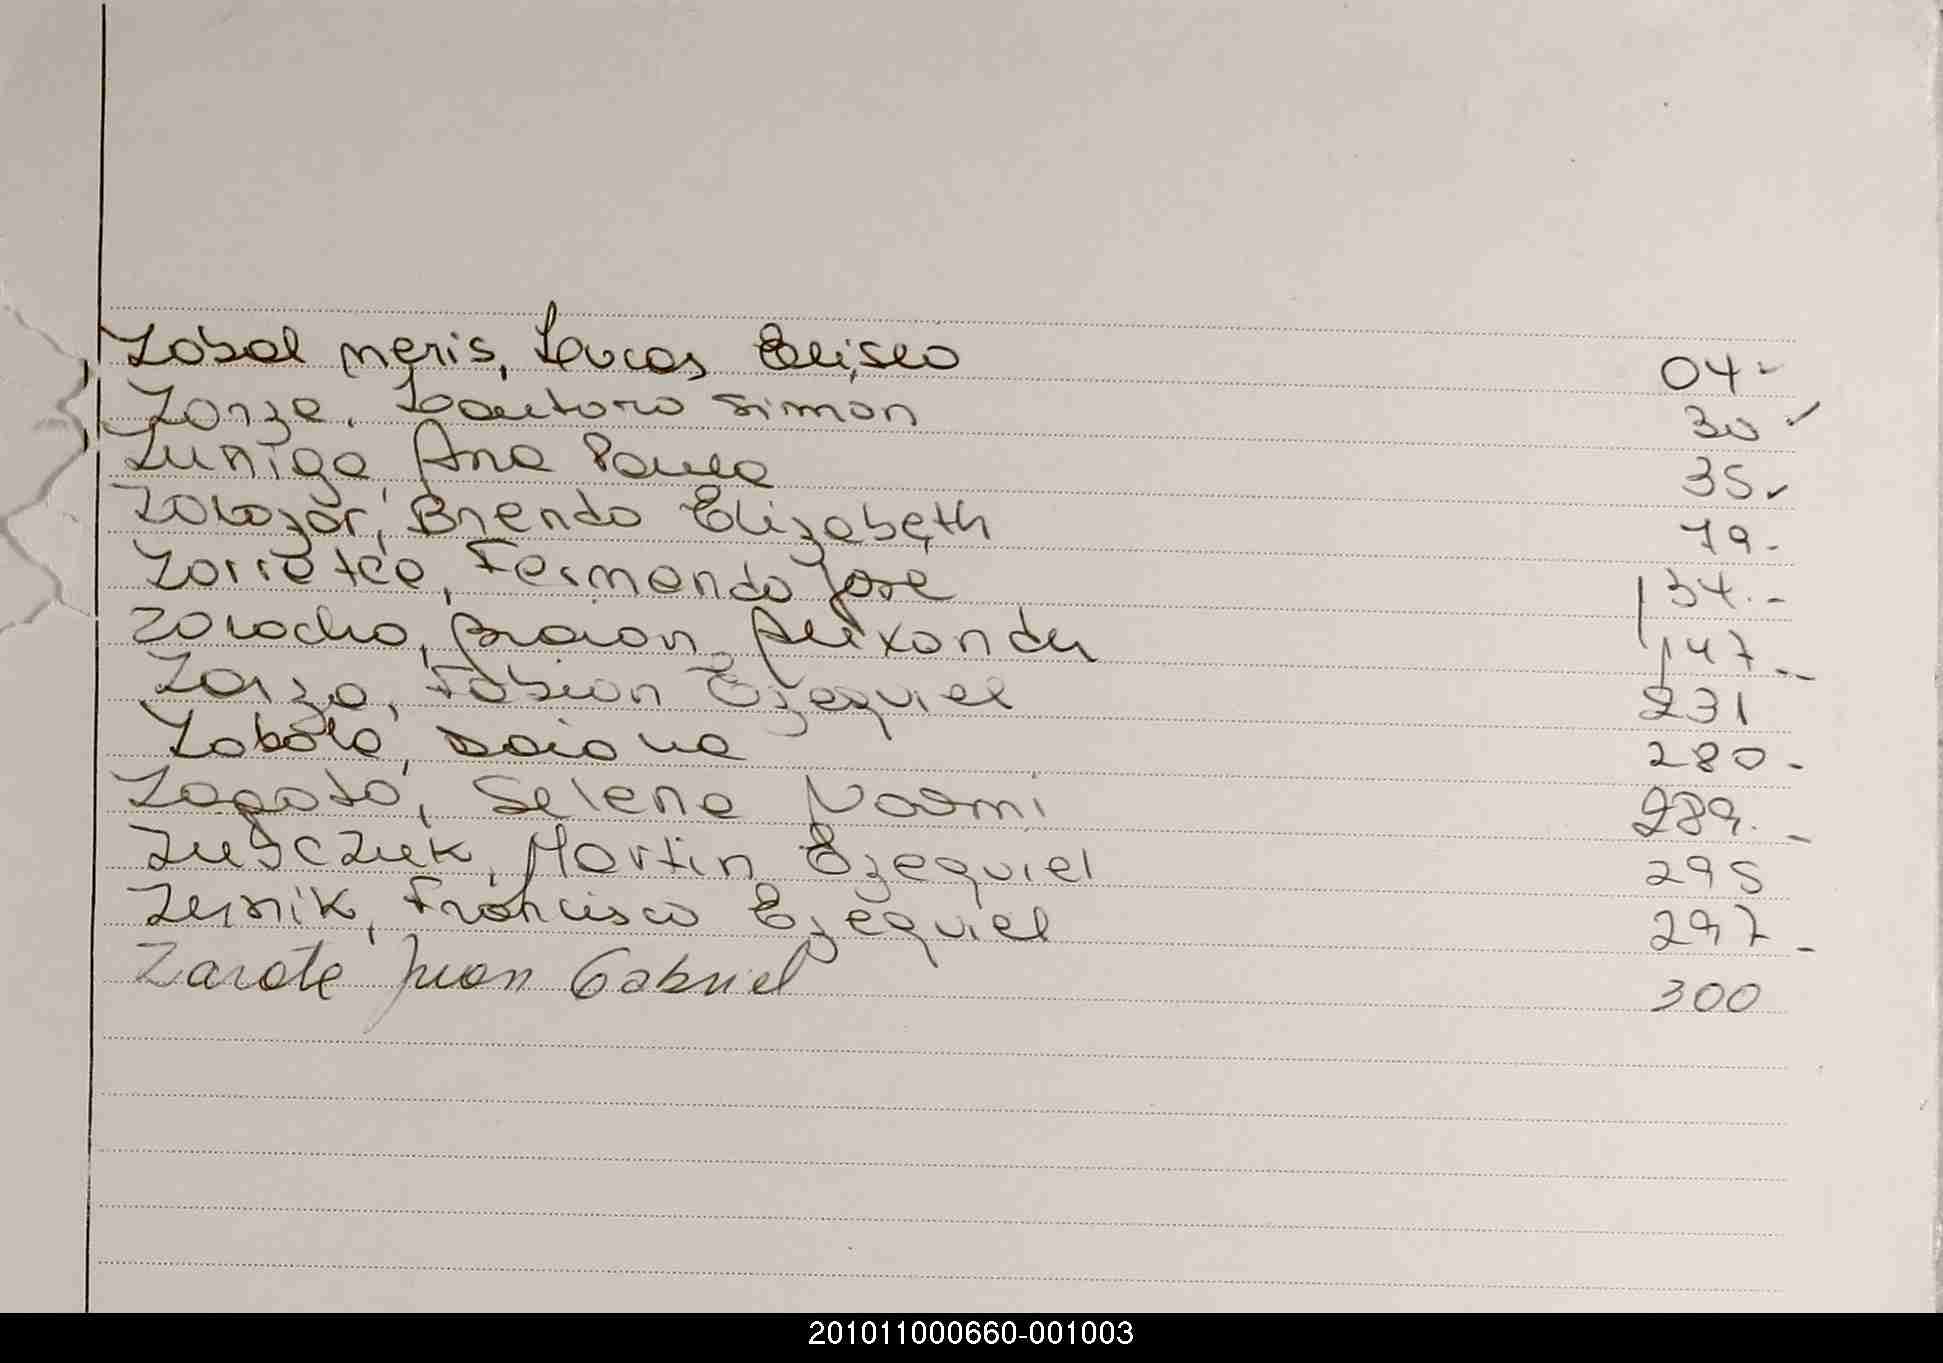 Zabal Neris, Lucas Eliseo 04-
Zanza, Lautaro Simon 30 ✓
Zuniga, Ana Paula 35 ✓
Zalazar, Brenda Elizabeth 79-
Zarratea, Fernando Jose 134.-
Zaracho, Braian Alexander 147-
Zarza, Fabian Ezequiel 231
Zabala, Daiana 280-
Zapata, Selena Noemi 289.-
Martin Ezequiel 295
Francisco Ezequiel 297-
Zarate Juan Gabriel 300
201011000660-001003